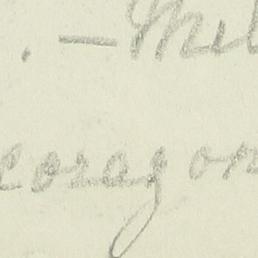 . — Mel
coragon